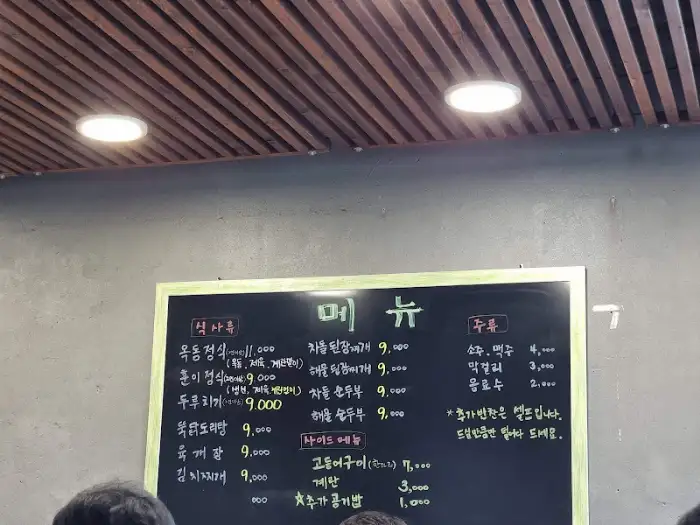 메뉴
식사류
옥동정식 11,000
(옥돔, 제육, 계란말이)
훈이정식 9,000
두루치기 9,000
뚝닭도리탕 9,000
육개장 9,000
김치찌개 9,000
000
차돌된장찌개 9,000
해물된장찌개 9,000
차돌순두부 9,000
해물순두부 9,000
사이드메뉴
고등어구이(한마리) 7,000
계란 3,000
☆추가공기밥 1,000
주류
소주. 맥주 4,000
막걸리 3,000
음료수 2,000
*추가반찬은 셀프입니다.
드실만큼만 드세요.